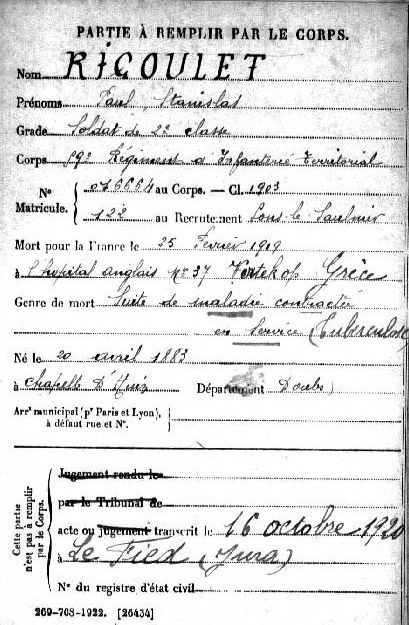 PARTIE À REMPLIR PAR LE CORPS.
Nom RICOULET
Prénoms Paul, Stanislas
Grade Soldat de 2e classe
Corps 59e Régiment d'Infanterie Territorial
N° Matricule. { 016664 au Corps. — Cl. 1903
122 au Recrutement Lons-le-Saulnier
Mort pour la France le 25 Fevrier 1919
à l'hopital anglais No 37 Vertekop Grèce
Genre de mort Suite de maladie contractée
en Service (Tuberculose)
Né le 20 avril 1883
à Chapelle d'Huin Département Doubs
Arrt municipal (pr Paris et Lyon), à défaut rue et N°.
Cette partie n'est pas à remplir par le Corps.
Jugement rendu le
par le Tribunal de
acte ou jugement transcrit le 16 octobre 1920
à Le Fied (Jura)
N° du registre d'état civil
269-708-1922. [26434]